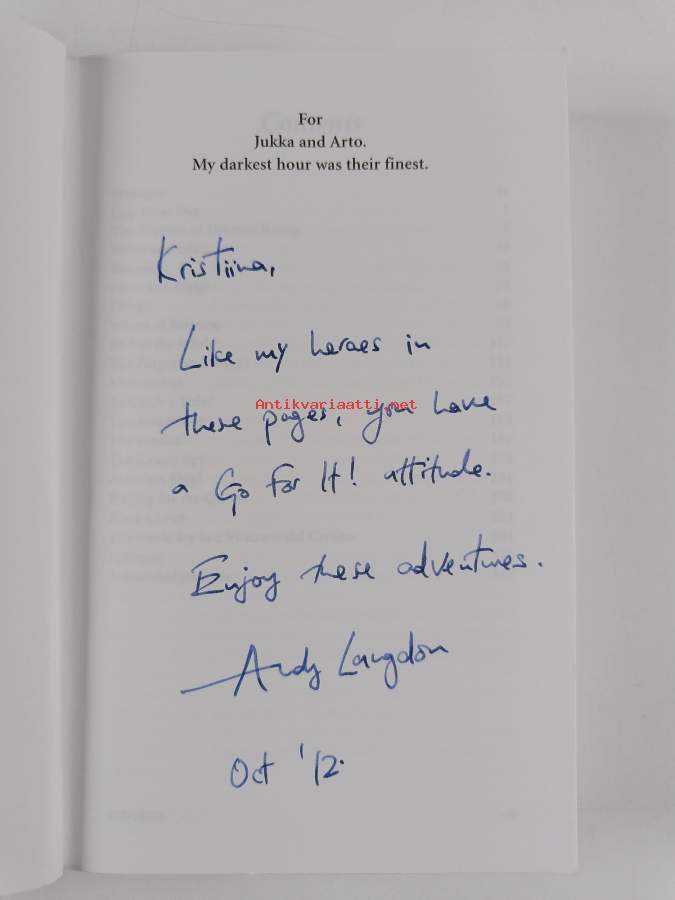 For
Jukka and Arto.
My darkest hour was their finest.
Kristiina,
Like my heroes in
Antikvariaatti.net
these pages, you have
a Go For It! attitude.
Enjoy these adventures.
Andy Langdon
Oct '12.